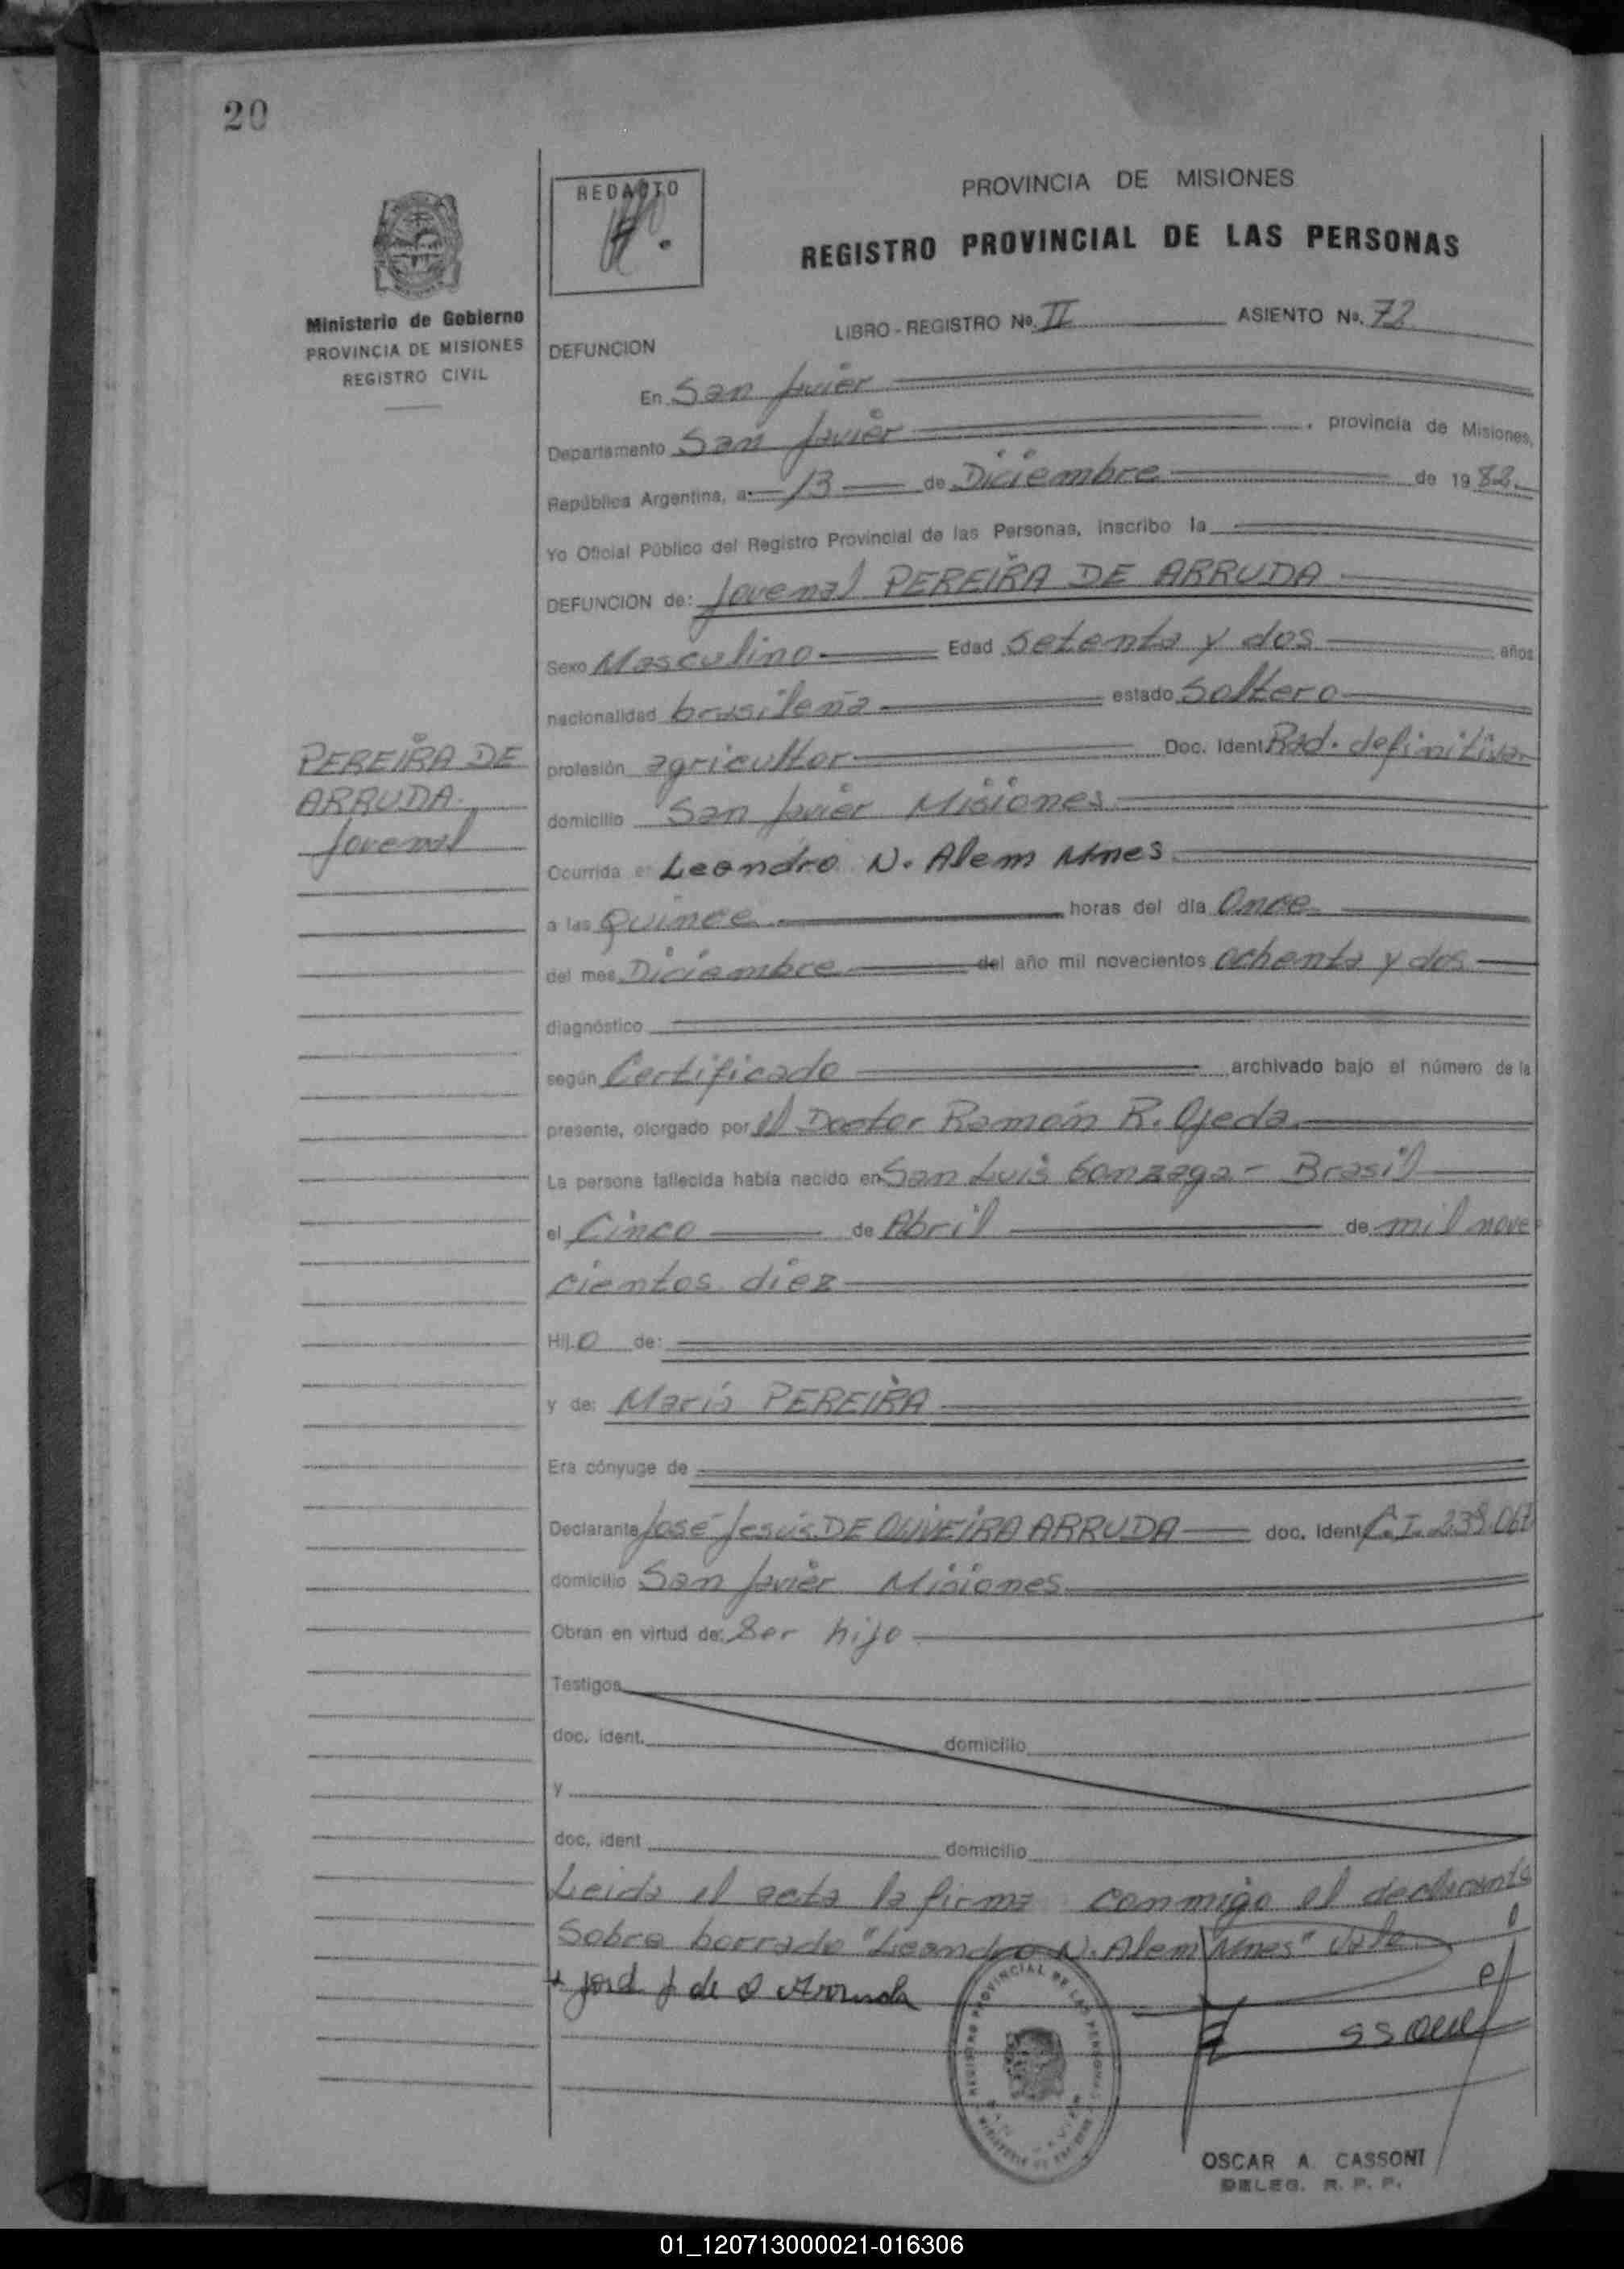 20
REDACTO
PROVINCIA DE MISIONES
REGISTRO PROVINCIAL DE LAS PERSONAS
Ministerio de Gobierno
PROVINCIA DE MISIONES
REGISTRO CIVIL
LIBRO - REGISTRO Nº. II ASIENTO Nº. 72
DEFUNCION
En San Javier
Departamento San Javier, provincia de Misiones,
República Argentina, a 13 de Diciembre de 1982
Yo Oficial Público del Registro Provincial de las Personas, inscribo la
DEFUNCION de: Jovenal PEREIRA DE ARRUDA
Sexo Masculino Edad Setenta y dos años
nacionalidad brasileña estado Soltero
PEREIRA DE
ARRUDA
Jovenal
profesión agricultor Doc. Ident. Rad. definitiva
domicilio San Javier Misiones
Ocurrida e Leandro N. Alem Mnes
a las Quince horas del día Once
del mes Diciembre del año mil novecientos ochenta y dos
diagnóstico
según Certificado archivado bajo el número de la
presente, otorgado por el Doctor Ramón R. Ojeda
La persona fallecida había nacido en San Luis Gonzaga - Brasil
el Cinco de Abril de mil nove
cientos diez
Hijo de:
y de: María PEREIRA
Era cónyuge de
Declarante José Jesús DE OLIVEIRA ARRUDA doc. ident C.I. 239.067
domicilio San Javier Misiones
Obran en virtud de: Ser hijo
Testigos
doc. ident. domicilio
y
doc. ident domicilio
Leida el acta la firma conmigo el declarante
Sobre borrado "Leandro N. Alem Mnes" Vale
José J de O Arruda
REGISTRO PROVINCIAL DE LAS PERSONAS
OSCAR A. CASSONI
DELEG. R. P. P.
01_120713000021-016306